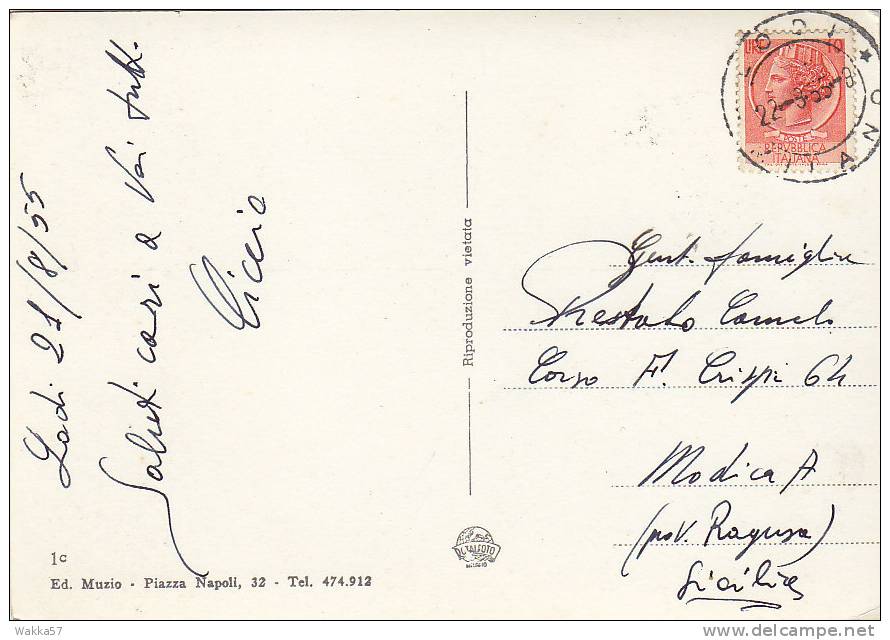 Lodi 21/8/55
Saluti cari a Voi tutti.
Ciccio
1c
Ed. Muzio - Piazza Napoli, 32 - Tel. 474.912
Riproduzione vietata
LIRE 10
POSTE
REPVBBLICA
ITALIANA
22-8-55-8
Gent. famiglia
Carmelo
Corso F. Crispi 64
Modica A
(prov. Ragusa)
Sicilia
Wakka57
delcampe.net